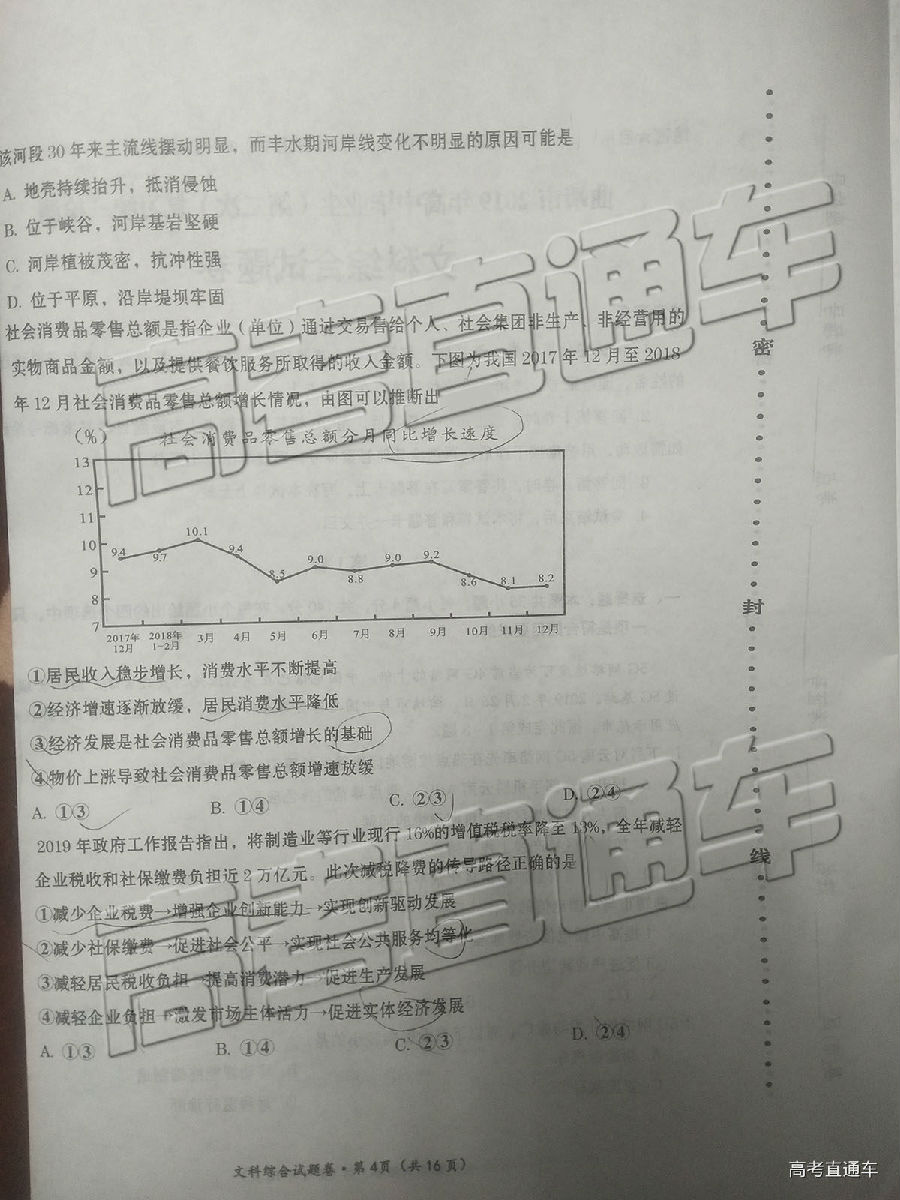 该河段30年来主流线摆动明显，而丰水期河岸线变化不明显的原因可能是
A. 地壳持续抬升，抵消侵蚀
B. 位于峡谷，河岸基岩坚硬
C. 河岸植被茂密，抗冲性强
D. 位于平原，沿岸堤坝牢固
社会消费品零售总额是指企业（单位）通过交易售给个人、社会集团非生产、非经营用的
实物商品金额，以及提供餐饮服务所取得的收入金额。下图为我国2017年12月至2018
年12月社会消费品零售总额增长情况，由图可以推断出
（%） 社会消费品零售总额分月同比增长速度
13
12
11
10
9
8
7
9.4 9.7 10.1 9.4 8.5 9.0 8.8 9.0 9.2 8.6 8.1 8.2
2017年12月 2018年1-2月 3月 4月 5月 6月 7月 8月 9月 10月 11月 12月
①居民收入稳步增长，消费水平不断提高
②经济增速逐渐放缓，居民消费水平降低
③经济发展是社会消费品零售总额增长的基础
④物价上涨导致社会消费品零售总额增速放缓
A. ①③ B. ①④ C. ②③ D. ②④
2019年政府工作报告指出，将制造业等行业现行16%的增值税税率降至13%，全年减轻
企业税收和社保缴费负担近2万亿元。此次减税降费的传导路径正确的是
①减少企业税费→增强企业创新能力→实现创新驱动发展
②减少社保缴费→促进社会公平→实现社会公共服务均等化
③减轻居民税收负担→提高消费潜力→促进生产发展
④减轻企业负担→激发市场主体活力→促进实体经济发展
A. ①③ B. ①④ C. ②③ D. ②④
文科综合试题卷·第4页（共16页）
密
封
线
高考直通车
高考直通车
高考直通车